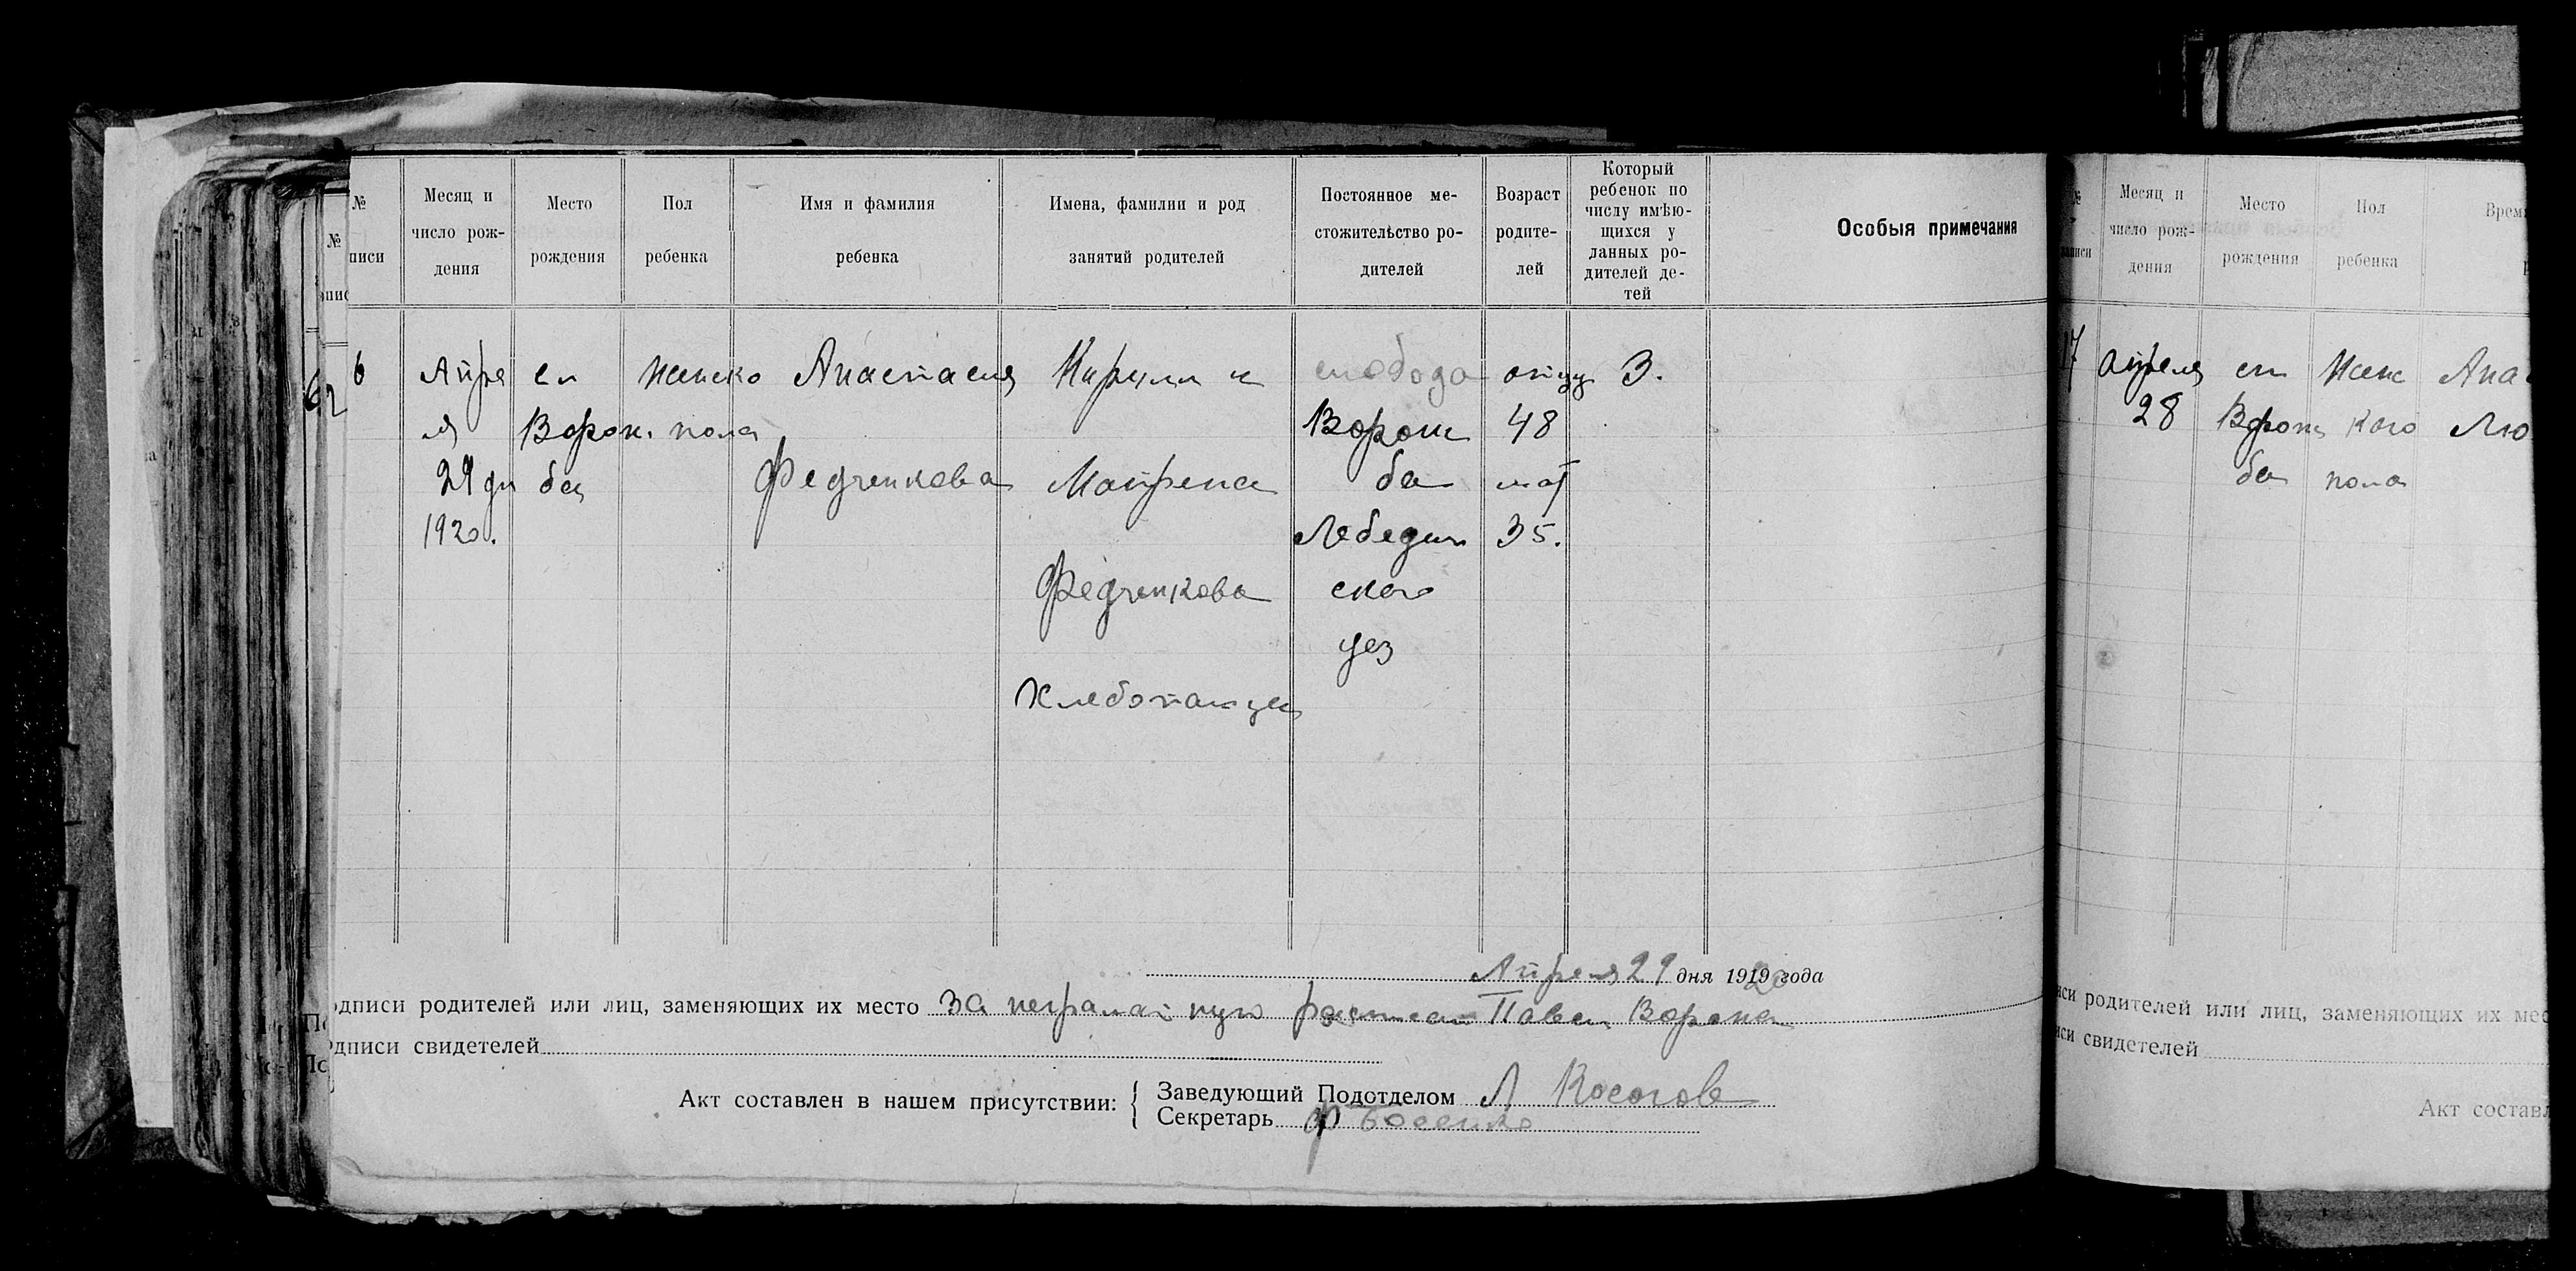 № писи
Месяц и число рож- дения
Место рождения
Пол ребенка
Имя и фамилия ребенка
Имена, фамилии и род занятий родителей
Постоянное ме- стожительство ро- дителей
Возраст родите- лей
Который ребенок по числу имѣю- щихся у данных ро- дителей де- тей
Особыя примечания
6
Апре
ля
29 дн
1920.
сл
Ворож.
ба
женско
пола
Анастасия
Федченкова
Кирилл и
Матрена
Федченкова
Хлебопашцы
слобода
Ворож
ба
Лебедин
ского
уез
отцу
48
мат
35.
3.
Апреля 29 дня 1919 20 года
одписи родителей или лиц, заменяющих их место за неграмотную расписался Павел Ворона
одписи свидетелей
Акт составлен в нашем присутствии:
Заведующий Подотделом Л Косогов
Секретарь
№
62
№ записи
Месяц и число рож- дения
Место рождения
Пол ребенка
Врем
17
апреля
28
сл
Ворож
ба
Женс
кого
пола
Анас
Лю
иси родителей или лиц, заменяющих их мес
иси свидетелей
Акт составл